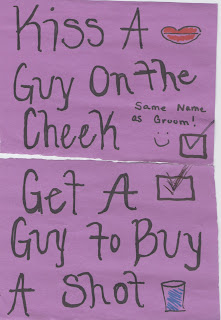 Kiss A
Guy On the
Cheek
Same Name
as Groom!
Get A
Guy to Buy
A Shot